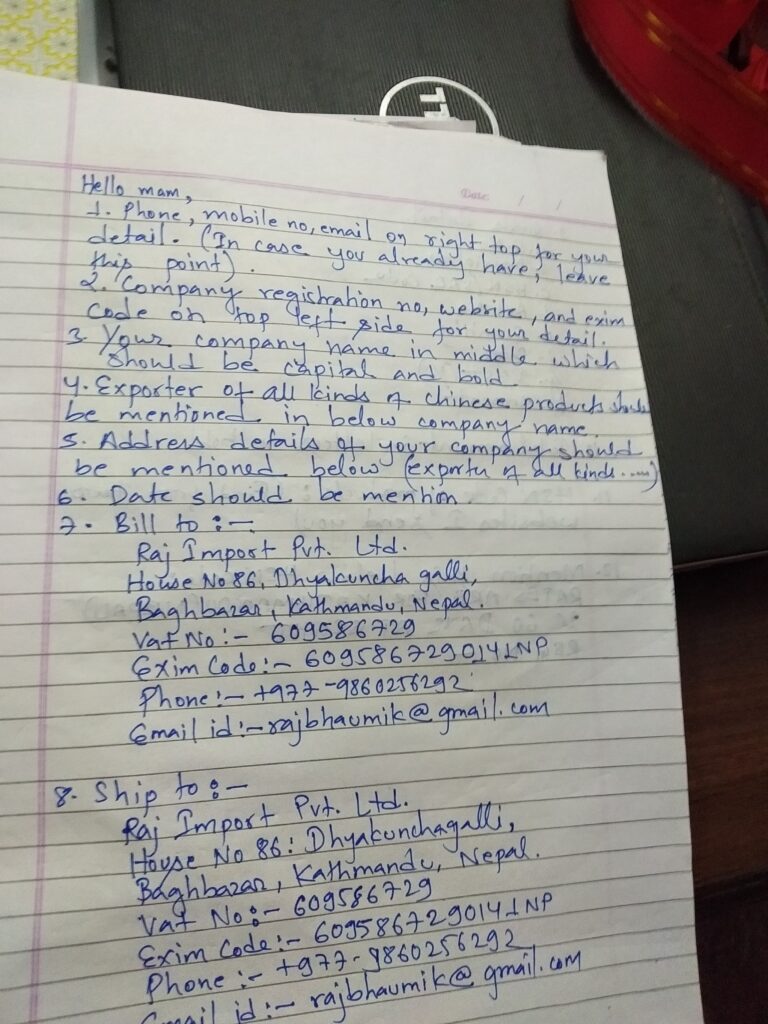 Date / /
Hello mam,
1. Phone, mobile no, email on right top for your
detail. (In case you already have, leave
this point).
2. Company registration no, website, and exim
code on top left side for your detail.
3. Your company name in middle which
should be capital and bold
4. Exporter of all kinds of chinese products should
be mentioned in below company name.
5. Address details of your company should
be mentioned below (exporter of all kinds.....)
6. Date should be mention.
7. Bill to :-
Raj Import Pvt. Ltd.
House No 86, Dhyakuncha galli,
Baghbazar, Kathmandu, Nepal.
Vat No :- 609586729
Exim Code :- 6095867290141NP
Phone :- +977-9860256292
Email id :- rajbhaumik@gmail.com
8. Ship to :-
Raj Import Pvt. Ltd.
House No 86: Dhyakunchagalli,
Baghbazar, Kathmandu, Nepal.
Vat No :- 609586729
Exim Code :- 6095867290141NP
Phone :- +977-9860256292
Email id :- rajbhaumik@gmail.com